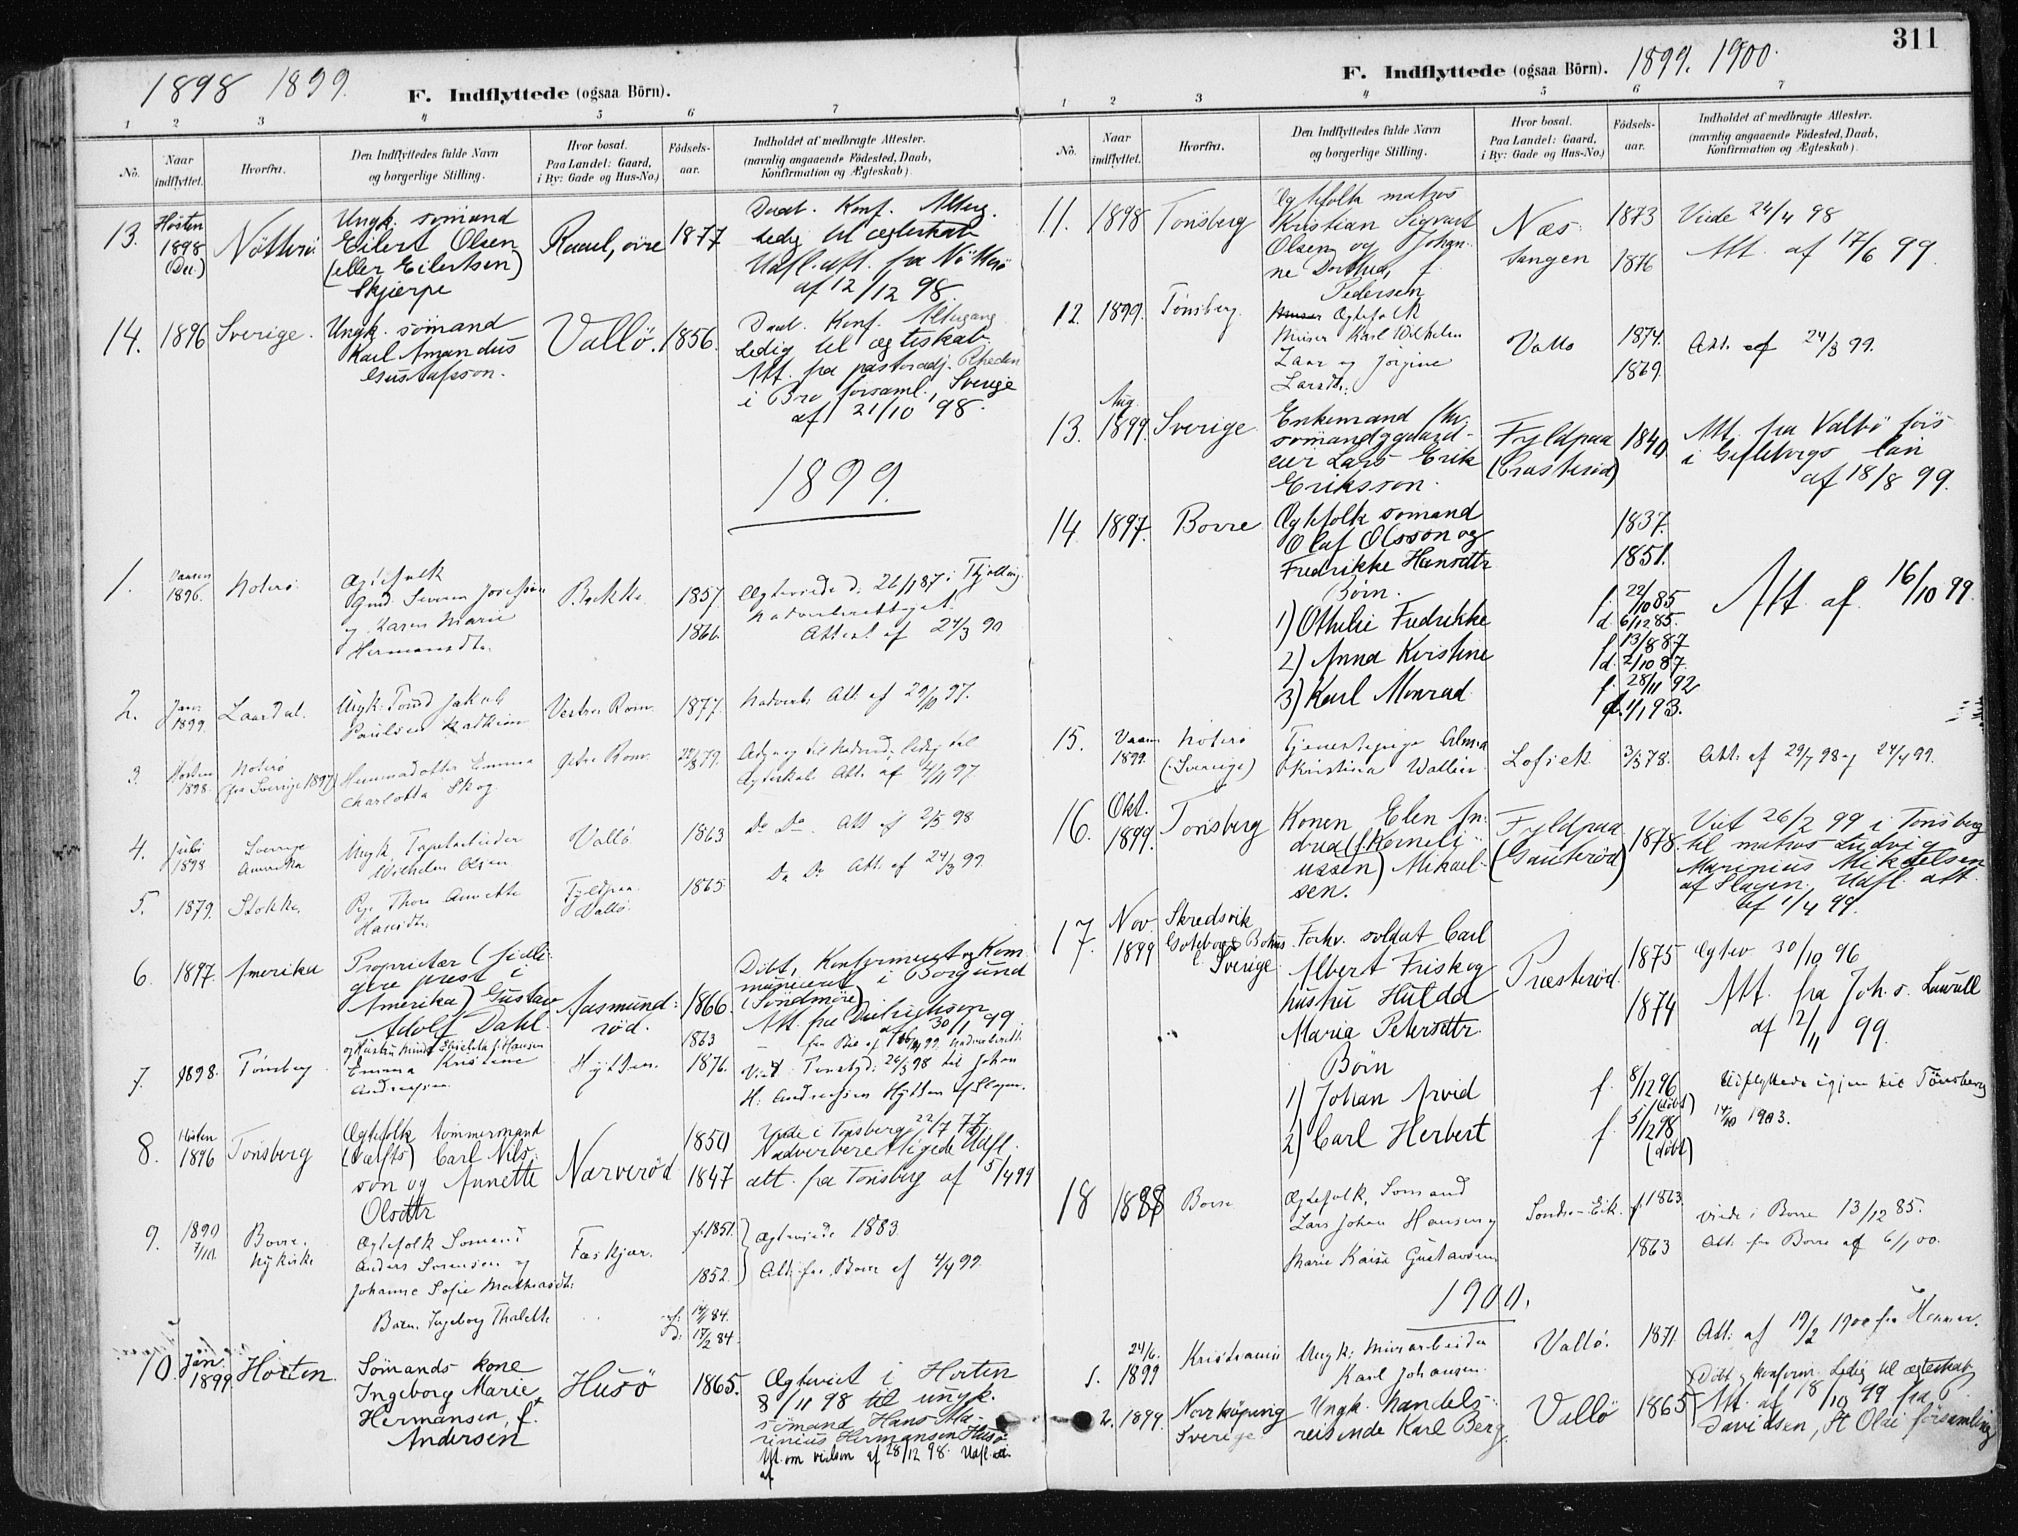 1898 1899.
F. Indflyttede (ogsaa Börn).
1 2 3 4 5 6 7
No.
Naar indflyttet.
Hvorfra.
Den Indflyttedes fulde Navn
og borgerlige Stilling.
Hvor bosat.
Paa Landet: Gaard,
i By: Gade og Hus-No.)
Fødsels-
aar.
Indholdet af medbragte Attester.
(navnlig angaaende Födested, Daab,
Konfirmation og Ægteskab).
13. Høsten 1898 (Dec.) Nötterö
Ungk. sömand
Eilert Olsen
(eller Eilertsen)
Skjerpe
1877
Daab. Konf. Alterg.
ledig til ægteskab
Udfl. att. fra Nötterö
af 12/12 98
14. 1896 Sverige.
Ungk. sömand
Karl Amandus
Gustafsson.
Vallö. 1856.
Daab. Konf. Altergang
Ledig til ægteskab
Att. fra pastoradj.
i Bro forsaml., Sverige
af 21/10 98.
1899.
1. 1896. Noterö
Ægtefolk
Gmd. Severin Josefsen
og Karen Marie
Hermansdtr.
Bakke. 1857
1866.
Ægteviede d. 26/1 87 i Tjølling
Nadverberettiget.
Attest af 24/3 99
2. Jan. 1899 Laardal.
Ungk. Tømd Jakob
Paulsen
Vestre Rom. 1877.
Nadverb. Att. af 29/10 97.
3. Høsten 1898. Noterö
(fra Sverige 1897)
Hemmadotter Emma
Charlotta Skog.
Østre Rom. 22/8 79.
Adgang til Nadverd; ledig til
Ægteskab. Att. af 4/11 97.
4. Juli 1898 Sverige
Amerika
Ungk. Fapelarbeider
Wilhelm Olsen
Vallö 1863
Do Do. Att af 2/5 98
5. 1879. Stokke.
Pge Thora Annette
Hansdtr.
Fyldpaa
Vallö. 1865.
Do Do Att. af 24/3 99
6. 1897. Amerika
Proprietær (tidli-
gere prest i
Amerika) Gustav
Adolf Dahl.
og Hustru
Aasmund-
röd. 1866.
1863
Döbt, Konfirmeret og Kom
municeret i Borgund
(Söndmöre)
Att. fra Didrichsen
af 30/1 99
7. 1898. Tönsberg
Emma Kristine
Andreassen
Hytten. 1876.
Viet i Tønsbg. 26/3 98 til Johan
H. Andreassen Hytten af Slagen.
8. Høsten 1896 Tönsberg
Ægtefolk tömmermand
(værfts) Carl Nils-
son og Annette
Olsdtr
Nærveröd 1850
1847
Viede i Tönsberg 22/7 77.
Nadverberettigede Udfl.
att. fra Tönsberg af 5/4 99
9. 1890 7/10. Borre.
Nykirke
Ægtefolk Sömand
Anders Sörensen og
Johanne Sofie Mathiasdtr.
Barn. Ingeborg Thalette
Fæskjær.
f. 1851.
1852.
f. 14/1 84.
d. 17/2 84.
Ægteviede 1883.
Att. fra Borre af 4/4 99.
10. Jan. 1899. Horten.
Sömands kone
Ingeborg Marie
Hermansen, f.
Andersen
Husö 1865.
Ægteviet i Horten
8/11 98 til ungk.
sömand Hans Ma-
rinius Hermansen Husö
Att. om vielsen af 28/12 98. Udfl. att.
af
311
F. Indflyttede (ogsaa Börn). 1899. 1900.
1 2 3 4 5 6 7
No.
Naar
indflyttet.
Hvorfra.
Den Indflyttedes fulde Navn
og borgerlige Stilling.
Hvor bosat.
Paa Landet: Gaard,
i By: Gade og Hus-No.)
Födsels-
aar.
Indholdet af medbragte Attester.
(navnlig angaaende Födested, Daab,
Konfirmation og Ægteskab).
11. 1898 Tönsberg
Ægtefolk matros
Kristian Sigvart
Olsen og Johan-
ne Dorthea, f.
Pedersen
Næs
tangen
1873
1876
Viede 24/4 98
Att. af 17/6 99.
12. 1899. Tönsberg.
Ægtefolk
Murer Karl Wilhelm
Laar og Jorgine
Larsdtr.
Vallö
1874.
1869.
Att. af 24/3 99.
13. Aug. 1899. Sverige
Enkemand
sömand gaard-
eier Lars Erik
Eriksson.
Fyldpaa 1840
Att. fra Valbö förs
i Gefleborgs län
af 18/8 99.
14. 1897. Borre
Ægtefolk sömand
Olaf Olsson og
Fredrikke Hansdtr
Börn.
1) Othilie Fredrikke
2) Anna Kirstine
3) Karl Monrad
1837.
1851.
f. 22/10 85
d. 6/12 85.
f. 13/8 87
d. 2/10 87.
f. 28/11 92
d. 1/1 93.
Att. af 16/10 99.
15. Vaaren 1899. Noterö
(Sverige)
Tjenestepige Alma
Kristina Wallin
Lofteik 3/3 78.
Att. af 29/7 98 og 24/4 99.
16. Okt. 1899. Tönsberg
Konen Elen An-
drea (f. Korneli-
ussen) Mikael-
sen.
Fyldpaa
(Gauteröd) 1878.
Viet 26/2 99 i Tönsberg
til matros Ludvig
Marinius Mikaelsen
af Slagen, Udfl. att.
af 1/4 99.
17. Nov. 1899 Skredsvik
Goteborg & Bohus
Sverige
Forhv. soldat Carl
Albert Frisk og
hustru Hulda
Maria Petersdtr.
Börn
1) Johan Arvid
2) Carl Herbert
Præsteröd.
1875
1874
f. 8/12 96
(döbt)
f. 5/12 98
(döbt)
Ægtev 30/10 96
Att. fra Joh. s. Laurell
af 12/11 99.
Udflyttede igjen til Tönsberg
14/10 1903.
18 Borre
Ægtefolk, Sömand
Lars Johan Hansen og
Marie Kaisa Gustavsen
Söndre-Eik.
f. 1863.
1863
Viede i Borre 13/12 85.
Att. fra Borre af 6/1 00.
1900.
1. 24/6. 1899 Kristiania
Ungk. Murarbeider
Karl Johansen.
Vallö. 1871
Att. af 19/2 1900 fra
2. 1899. Norrköping
Sverige.
Ungk. handels-
reisende Karl Berg.
Vallö 1865
Döbt og konfirm. Ledig til ægteskab,
Att. af 18/10 99 fra P.
Davidsen, St Olai församling